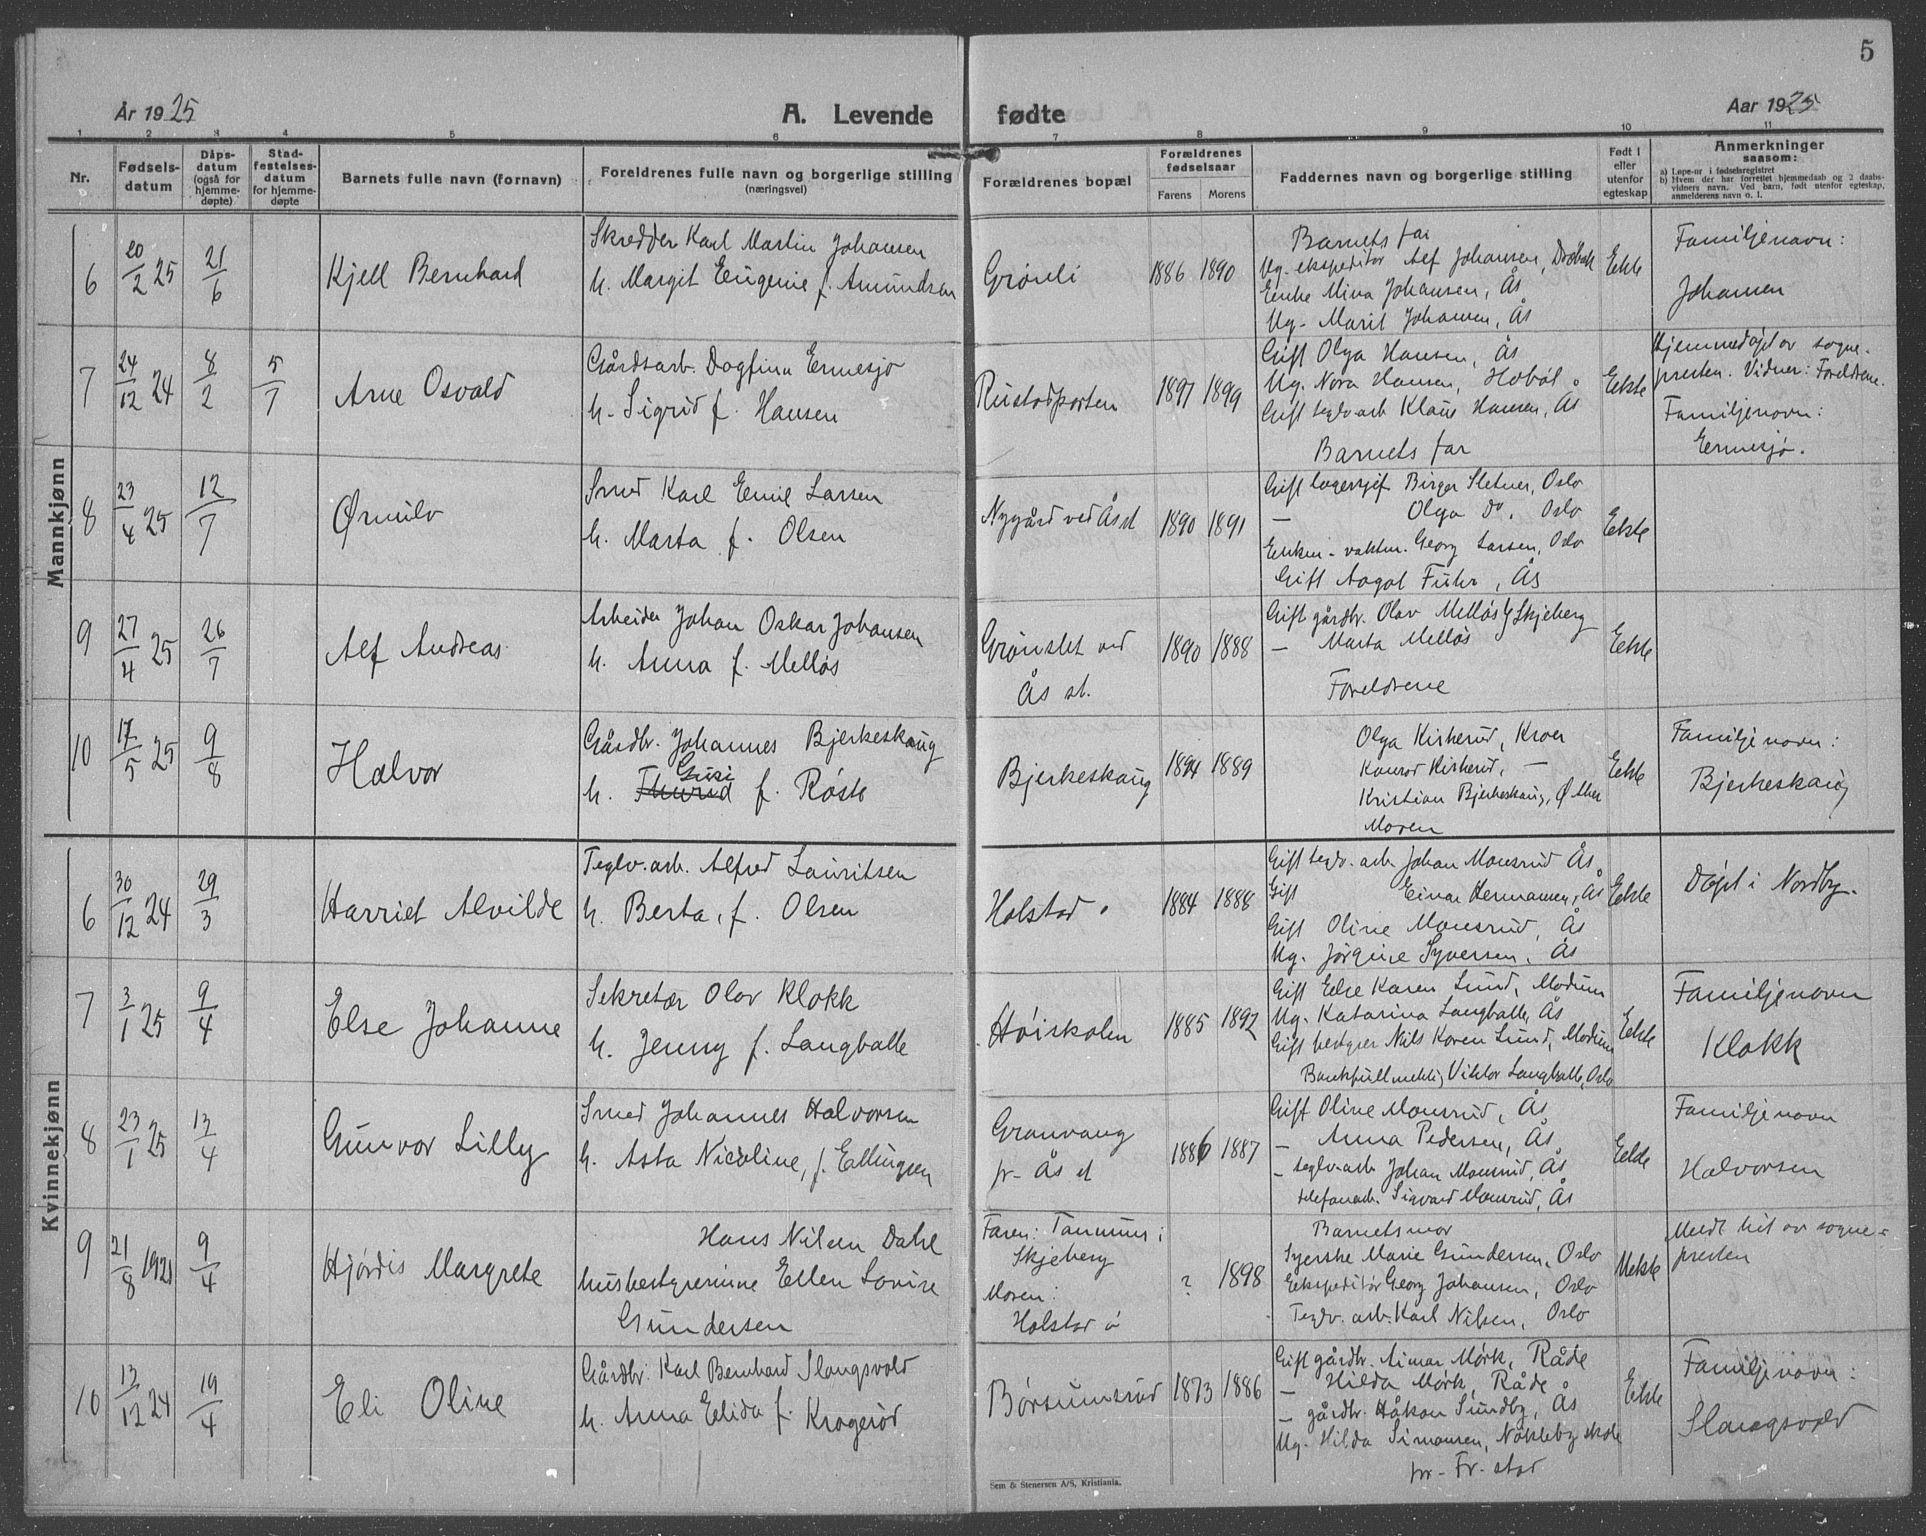 5
År 1925
A. Levende
fødte
Aar 1925
1 2 3 4 5 6 7 8 9 10 11
Nr.
Fødsels-
datum
Dåps-
datum
(også for
hjemme-
døpte)
Stad-
festelses-
datum
for hjemme-
døpte
Barnets fulle navn (fornavn)
Foreldrenes fulle navn og borgerlige stilling
(næringsvei)
Forældrenes bopæl
Forældrenes
fødselsaar
Farens Morens
Faddernes navn og borgerlige stilling
Født i
eller
utenfor
egteskap
Anmerkninger
saasom:
a) Løpe-nr i fødselsregistret
b) Hvem der har forrettet hjemmedaab og 2 daabs-
vidners navn. Ved barn, født utenfor egteskap,
anmelderens navn o. l.
Mannkjønn
6
20/2 25
21/6
Kjell Bernhard
Skredder Karl Martin Johansen
h. Margit Eugenie f. Amundsen
Grønli
1886 1890
Barnets far
Ug. ekspeditør Alf Johansen, Drøbak
Enke Mina Johansen, Ås
Ug. Marit Johansen, Ås
Ekte
Familjenavn:
Johansen
7
24/12 24
8/2
5/7
Arne Osvald
Gårdsarb. Dagfinn Ermesjø
h. Sigrid f. Hansen
Rustadporten
1897 1899
Gift Olga Hansen, Ås
Ug. Nora Hansen, Hobøl
Gift teglv.arb Klaus Hansen, Ås
Barnets far
Ekte
Hjemmedøpt av sogne-
presten. Vidner: Foreldrene.
Familjenavn:
Ermesjø.
8
23/4 25
12/7
Ørnulv
Smed Karl Emil Larsen
h. Marta f. Olsen
Nygård ved Ås st
1890 1891
Gift lagersjef Birger Sletner, Oslo
— Olga do, Oslo
Enkem. vaktm. Georg Larsen, Oslo
Gift Aagot Fuhr, Ås
Ekte
9
27/4 25
26/7
Alf Andreas
Arbeider Johan Oskar Johansen
h. Anna f. Melløs
Grønslet ved
Ås st.
1890 1888
Gift gårdbr. Olav Melløs, Skjeberg
— Marta Melløs
Foreldrene
Ekte
10
17/5 25
9/8
Halvor
Gårdbr. Johannes Bjerkeskaug
Gusi
h. Thurid f. Røste
Bjerkeskaug
1894 1889
Olga Kirkerud, Kroer
Konrad Kirkerud, —
Kristian Bjerkeskaug,
Moren
Ekte
Familjenavn:
Bjerkeskaug
Kvinnekjønn
6
30/12 24
29/3
Harriet Alvilde
Teglv.arb. Alfred Lauritsen
h. Berta, f. Olsen
Holstad
1884 1888
Gift teglv. arb Johan Monsrud Ås
Gift Einar Hermansen, Ås
Gift Oline Monsrud, Ås
Ug. Jørgine Syversen, Ås
Ekte
Døpt i Nordby.
7
3/1 25
9/4
Else Johanne
Sekretær Olav Klokk
h. Jenny f. Langballe
Høiskolen
1885 1892
Gift Else Karen Lund, Modum
Ug. Katarina Langballe, Ås
Gift bestyrer Nils Koren Lund, Modum
Bankfullmektig Viktor Langballe, Oslo
Ekte
Familjenavn
Klokk
8
23/1 25
13/4
Gunvor Lilly
Smed Johannes Halvorsen
h. Asta Nicoline, f. Ellingsen
Granvang
pr. Ås st
1886 1887
Gift Oline Monsrud, Ås
— Anna Pedersen, Ås
— teglv.arb Johan Monsrud, Ås
telefonarb. Sigvard Monsrud, Ås
Ekte
Familjenavn
Halvorsen
9
21/8 1921
9/4
Hjørdis Margrete
Hans Nilsen Dahl
husbestyrerinne Ellen Lovise
Gundersen
Faren: Tammun i
Skjeberg
Moren:
Holstad ø
? 1898
Barnets mor
Syerske Marie Gundersen, Oslo
Ekspeditør Georg Johansen, Oslo
Teglv. arb. Karl Nilsen, Oslo
Uekte
Meldt hit av sogne-
presten
10
13/12 24
19/4
Eli Oline
Gårdbr. Karl Bernhard Slangsvold
h. Anna Elida f. Krogerød
Børsumsrud
1873 1886
Gift gårdbr. Aimar Mørk, Råde
— Hilda Mørk, Råde
— gårdbr. Håkon Sundby, Ås
Ug. Hilda Simonsen, Nøkleby skole
pr. Fr.stad
Ekte
Familjenavn:
Slangsvold
Sem & Stenersen A/S, Kristiania.